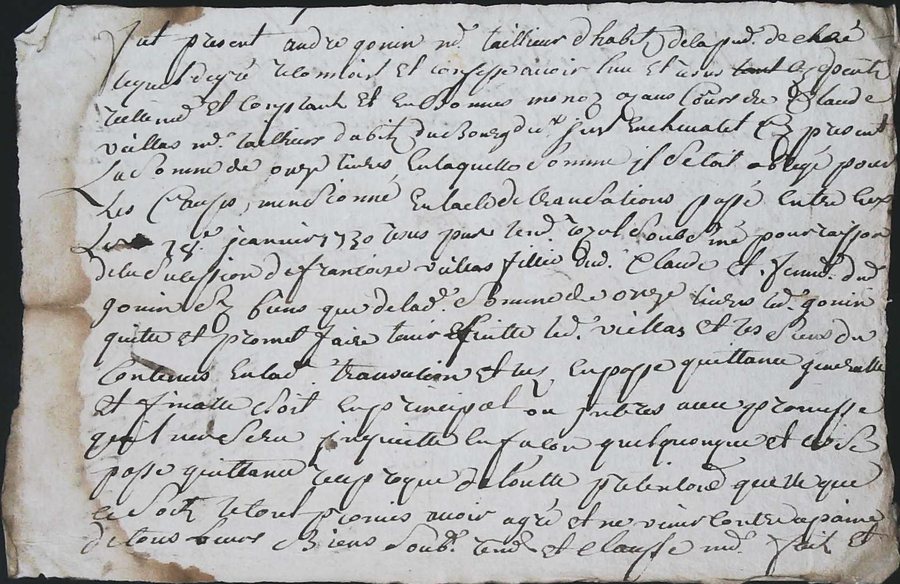 fut present andre gonin md. tailleur d'habitz de la pnt. de
lequel de gré reconnoist et confesse avoir heu et reçus
réellemt. et comptant et en bonnes monoy ayans cours de Claude
vieillas md. tailleur d'abitz du bourg de st. just en chevalet present
La Somme de onze livres En laquelle Somme il setoit obligé pour
Les Causes mensionné En lacte de transations passé Entre Eux
Le 18e. jeanvier 1730 recus par royal soubsné pour raison
de la sucession de francoise vieillas fillie dud. Claude et femme dud.
gonin Et biens que de lad. Somme de onze livres led. gonin
quitte et promet faire tenir quitte led. vieillas et les siens du
Contenus En lad. transation et luy En passe quittance generalle
et finalle soit En principal ou intrés avec promesse
quil ne sera inquietté En facon quelquonque et
passe quittance reciproque de toutte pretention quelle que
ce soit le tout promis avoir agré et ne venir contre a paine
de tous leurs Biens soub. renon. et clausse Fait et